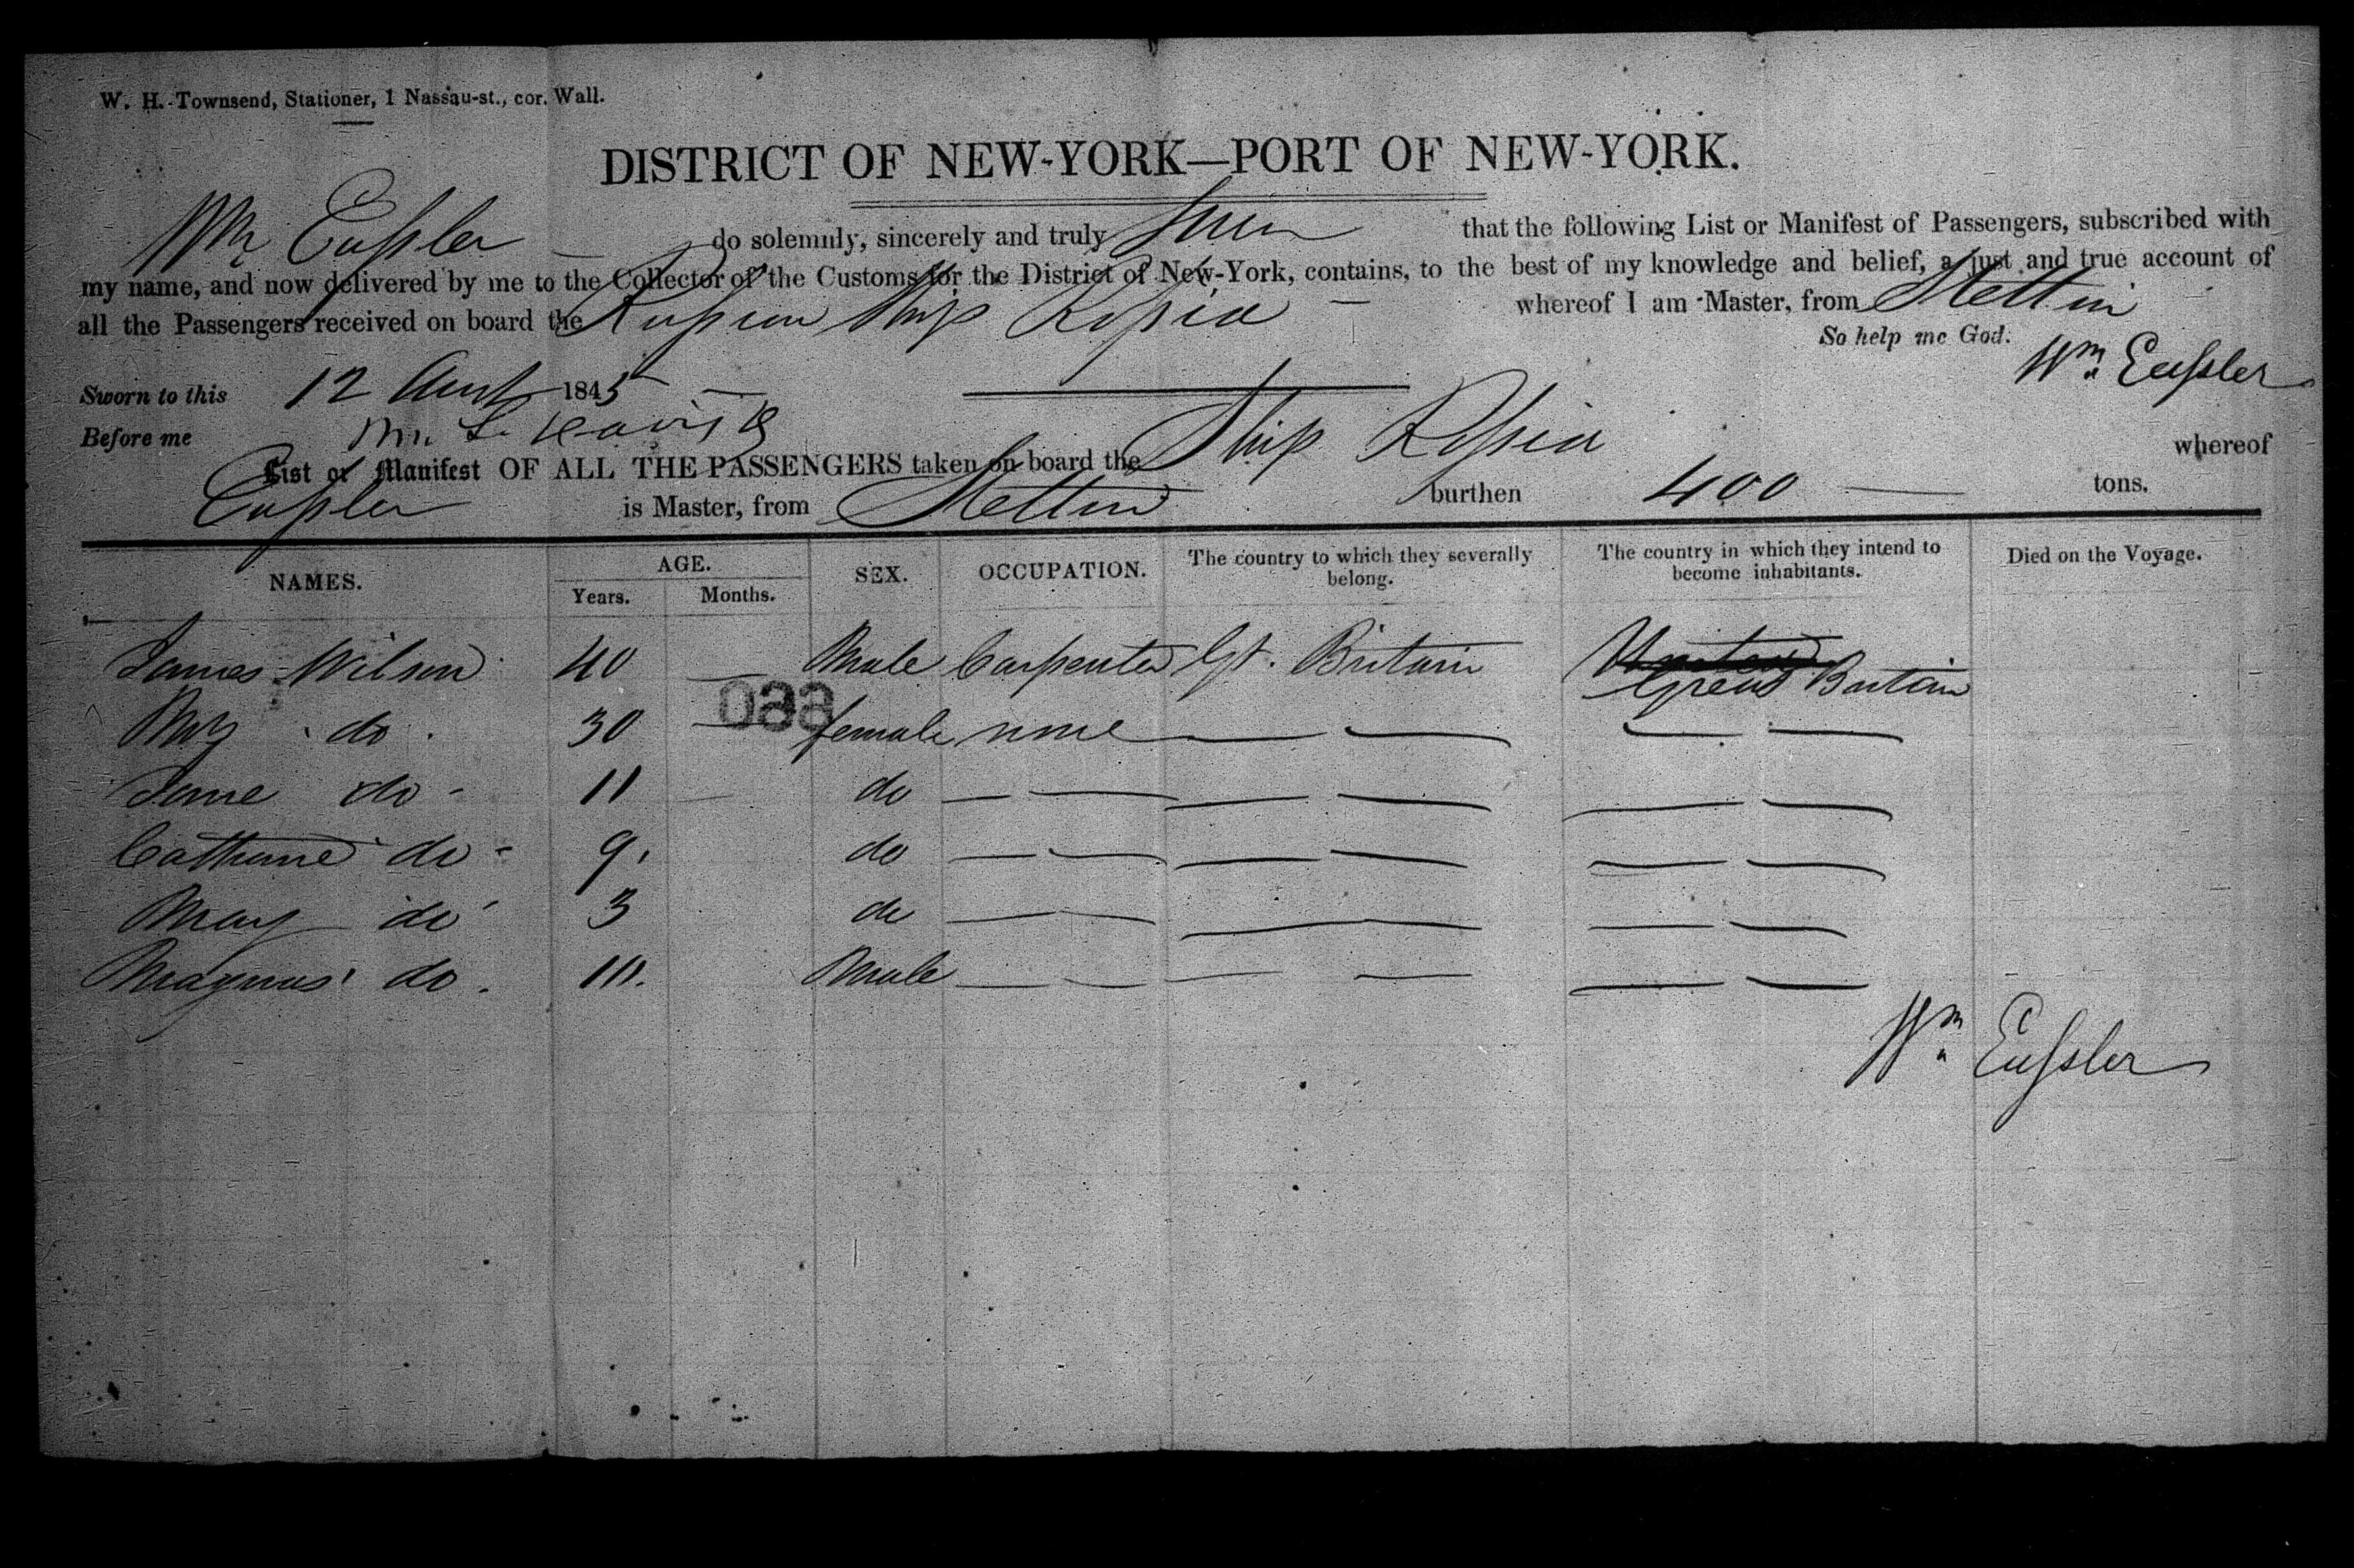 W. H. Townsend, Stationer, 1 Nassau-st., cor. Wall.
DISTRICT OF NEW-YORK—PORT OF NEW-YORK.
Wm Eussler do solemnly, sincerely and truly that the following List or Manifest of Passengers, subscribed with
my name, and now delivered by me to the Collector of the Customs for the District of New-York, contains, to the best of my knowledge and belief, a just and true account of
all the Passengers received on board the Russian Ship Rossia whereof I am Master, from Stettin
So help me God.
Wm Eussler
Sworn to this 12 1845
Before me
List or Manifest OF ALL THE PASSENGERS taken on board the Ship Rossia whereof
Eussler is Master, from Stettin burthen 400 tons.
NAMES. AGE. Years. Months. SEX. OCCUPATION. The country to which they severally belong. The country in which they intend to become inhabitants. Died on the Voyage.
James Wilson 40 — Male Carpenter Gt. Britain United Great Britain
Mrs do. 30 — female none — — — —
Jane do - 11 — do — — — — — —
Cathrine do - 9. do — — — — — —
Mary do 3 do — — — — — —
Magnus do. Male — — — — — —
Wm Eussler